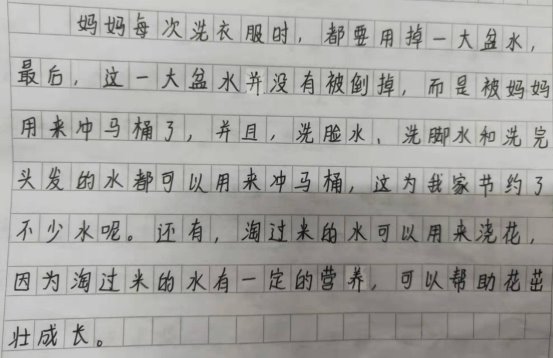 妈妈每次洗衣服时，都要用掉一大盆水，
最后，这一大盆水并没有被倒掉，而是被妈妈
用来冲马桶了，并且，洗脸水、洗脚水和洗完
头发的水都可以用来冲马桶，这为我家节约了
不少水呢。还有，淘过米的水可以用来浇花，
因为淘过米的水有一定的营养，可以帮助花茁
壮成长。